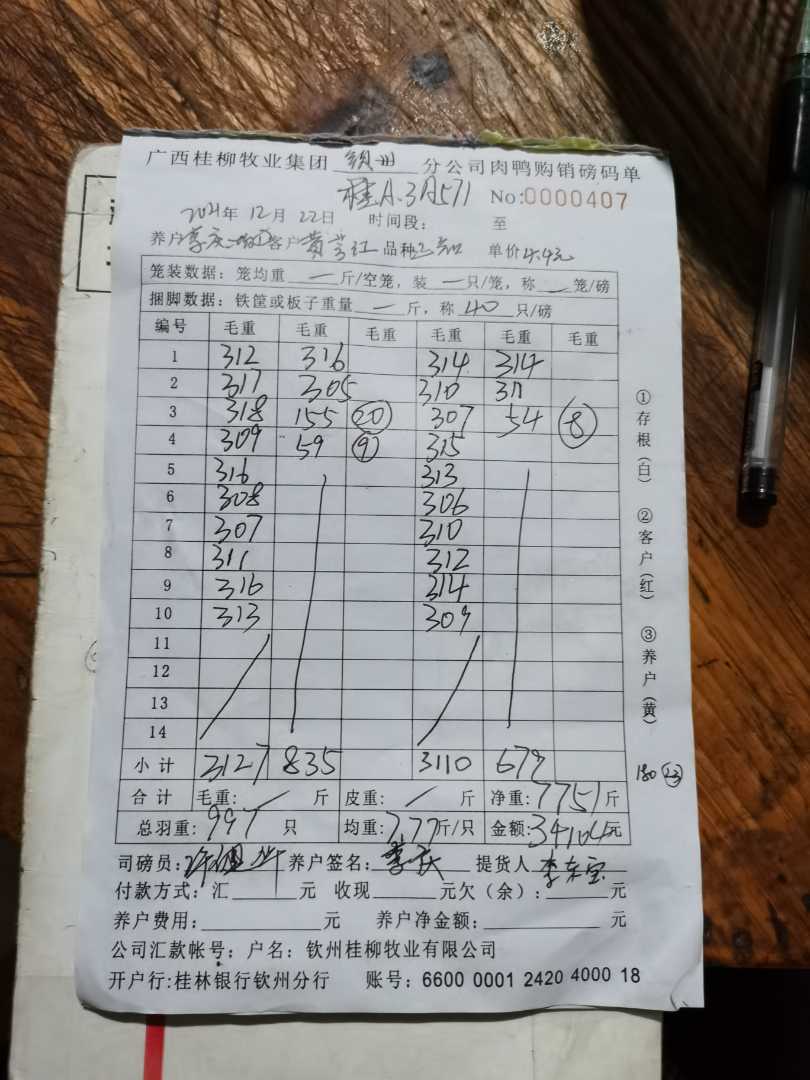 广西桂柳牧业集团 钦州 分公司肉鸭购销磅码单
桂A.3A571 No:0000407
2021年 12月 22日 时间段: 至
养户李庆 客户黄 红 品种 单价4.4元
笼装数据: 笼均重 一 斤/空笼, 装 一 只/笼, 称 一 笼/磅
捆脚数据: 铁筐或板子重量 一 斤, 称 40 只/磅
编号 毛重 毛重 毛重 毛重 毛重 毛重
1 312 316 314 314
2 317 305 310 311
3 318 155 20 307 54 8
4 309 59 9 315
5 316 313
6 308 306
7 307 310
8 311 312
9 316 314
10 313 309
11
12
13
14
小计 3127 835 3110 679
合计 毛重: 斤 皮重: 斤 净重: 7751斤
总羽重: 997 只 均重: 7.77斤/只 金额: 34104元
司磅员: 养户签名: 李庆 提货人 李东宝
付款方式: 汇 元 收现 元欠(余): 元
养户费用: 元 养户净金额: 元
公司汇款帐号: 户名: 钦州桂柳牧业有限公司
开户行:桂林银行钦州分行 账号: 6600 0001 2420 4000 18
①存根(白) ②客户(红) ③养户(黄)
180 23